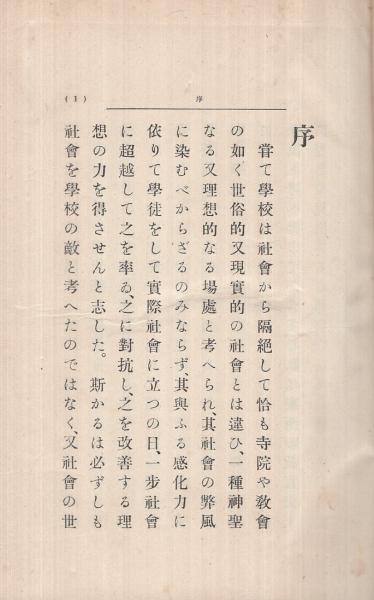 序
(1)
序
嘗て學校は社會から隔絕して恰も寺院や敎會
の如く世俗的又現實的の社會とは違ひ、一種神聖
なる又理想的なる場處と考へられ、其社會の弊風
に染むべからざるのみならず、其與ふる感化力に
依りて學徒をして實際社會に立つの日、一步社會
に超越して之を率ゐ、之に對抗し、之を改善する理
想の力を得させんと志した。斯かるは必ずしも
社會を學校の敵と考へたのではなく、又社會の世